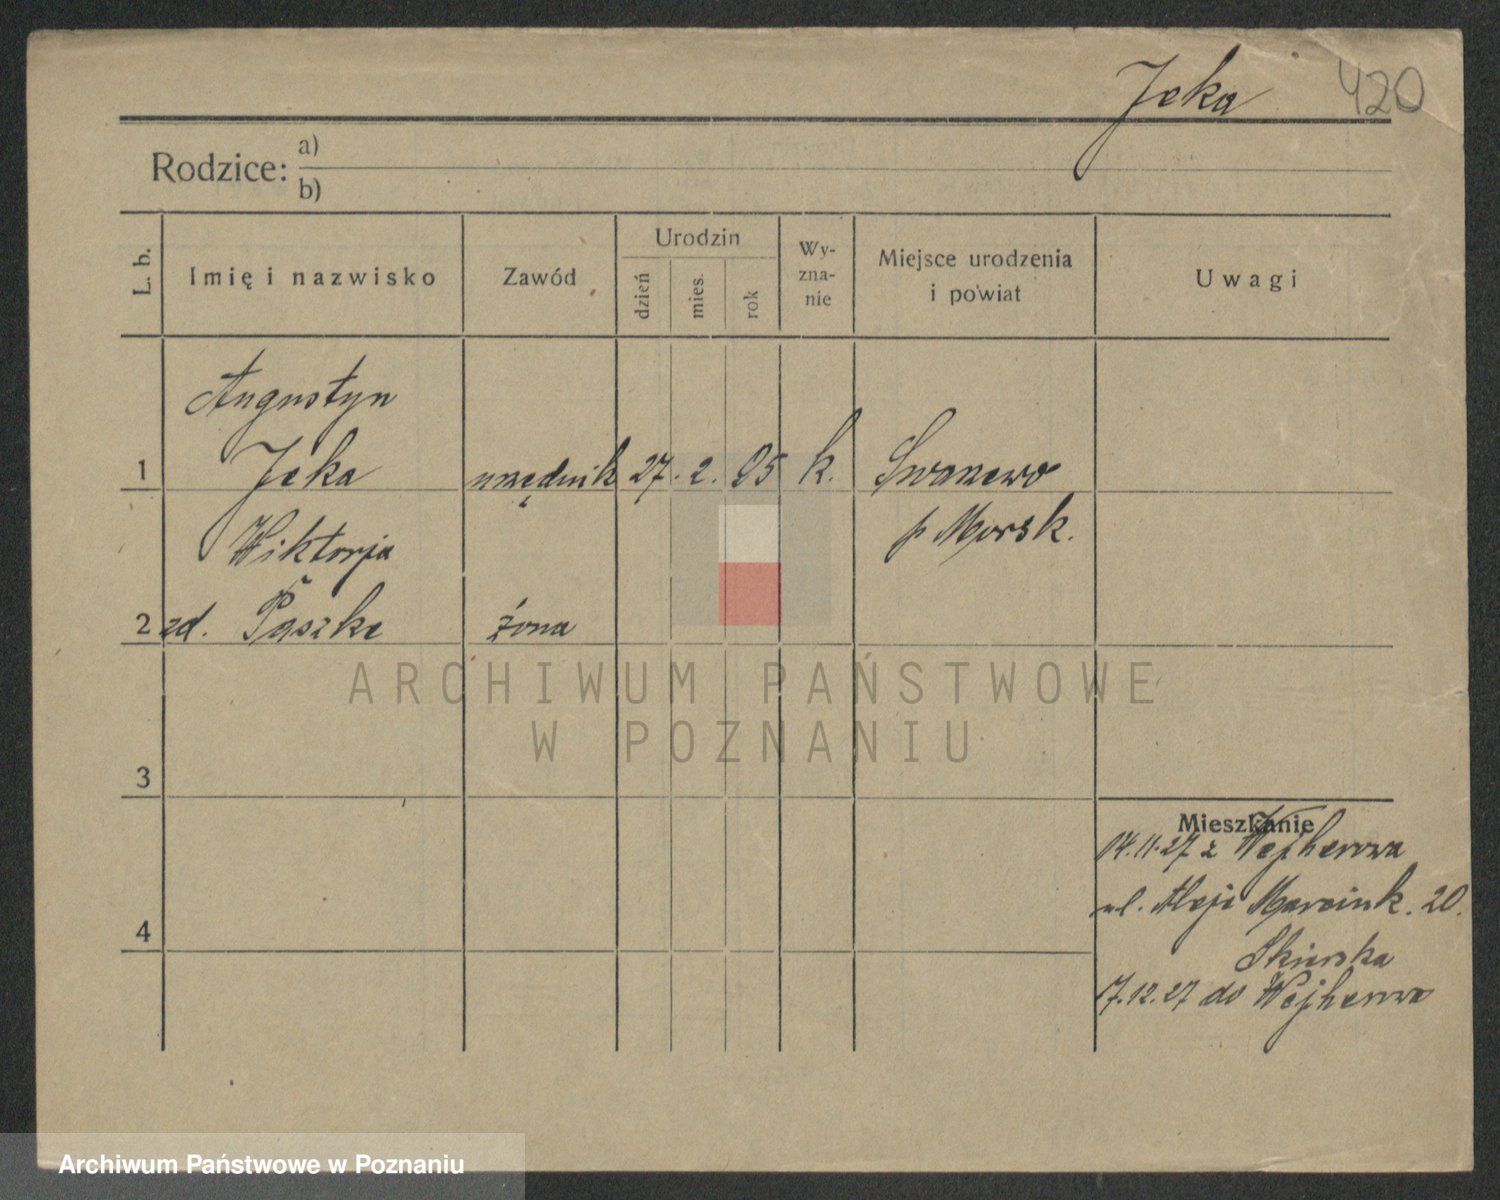 Jeka 420
Rodzice: a)
b)
L. b.
Imię i nazwisko
Zawód
Urodzin
dzień
mies.
rok
Wy-
zna-
nie
Miejsce urodzenia
i powiat
Uwagi
Augustyn
1 Jeka urzędnik 27. 2. 95 k. Swarzewo
Wiktorja p Morsk.
2 zd. Paszke żona
ARCHIWUM PAŃSTWOWE
W POZNANIU
3
Mieszkanie
14.11.27 z Wejherowa
ul. Aleje Marcink. 20.
4
17.12.27 do Wejherowo
Archiwum Państwowe w Poznaniu